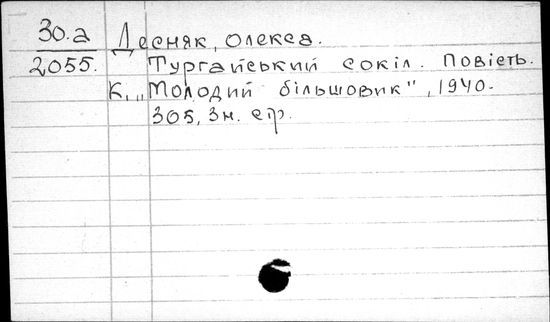 30.а Десняк, Олекса.
2055. Тургайський сокіл. Повість.
К., „Молодий більшовик", 1940.
305, 3 н. стр.